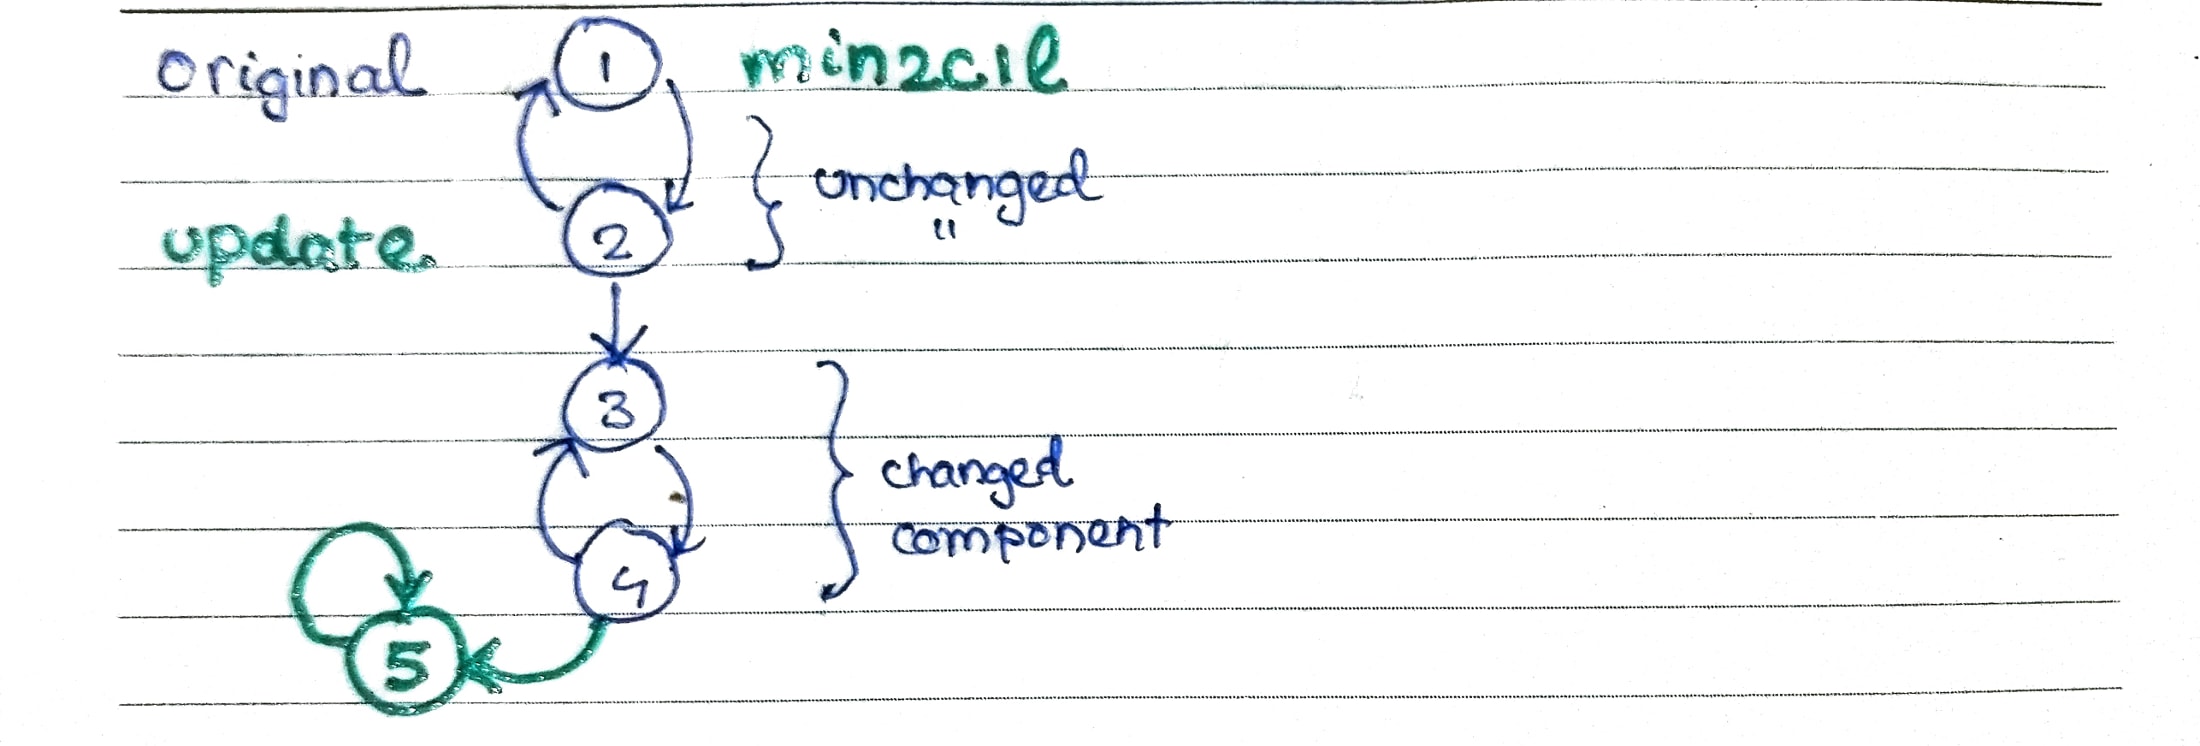 original 1 min2c1l
unchanged
"
update 2
3
changed
component
4
5